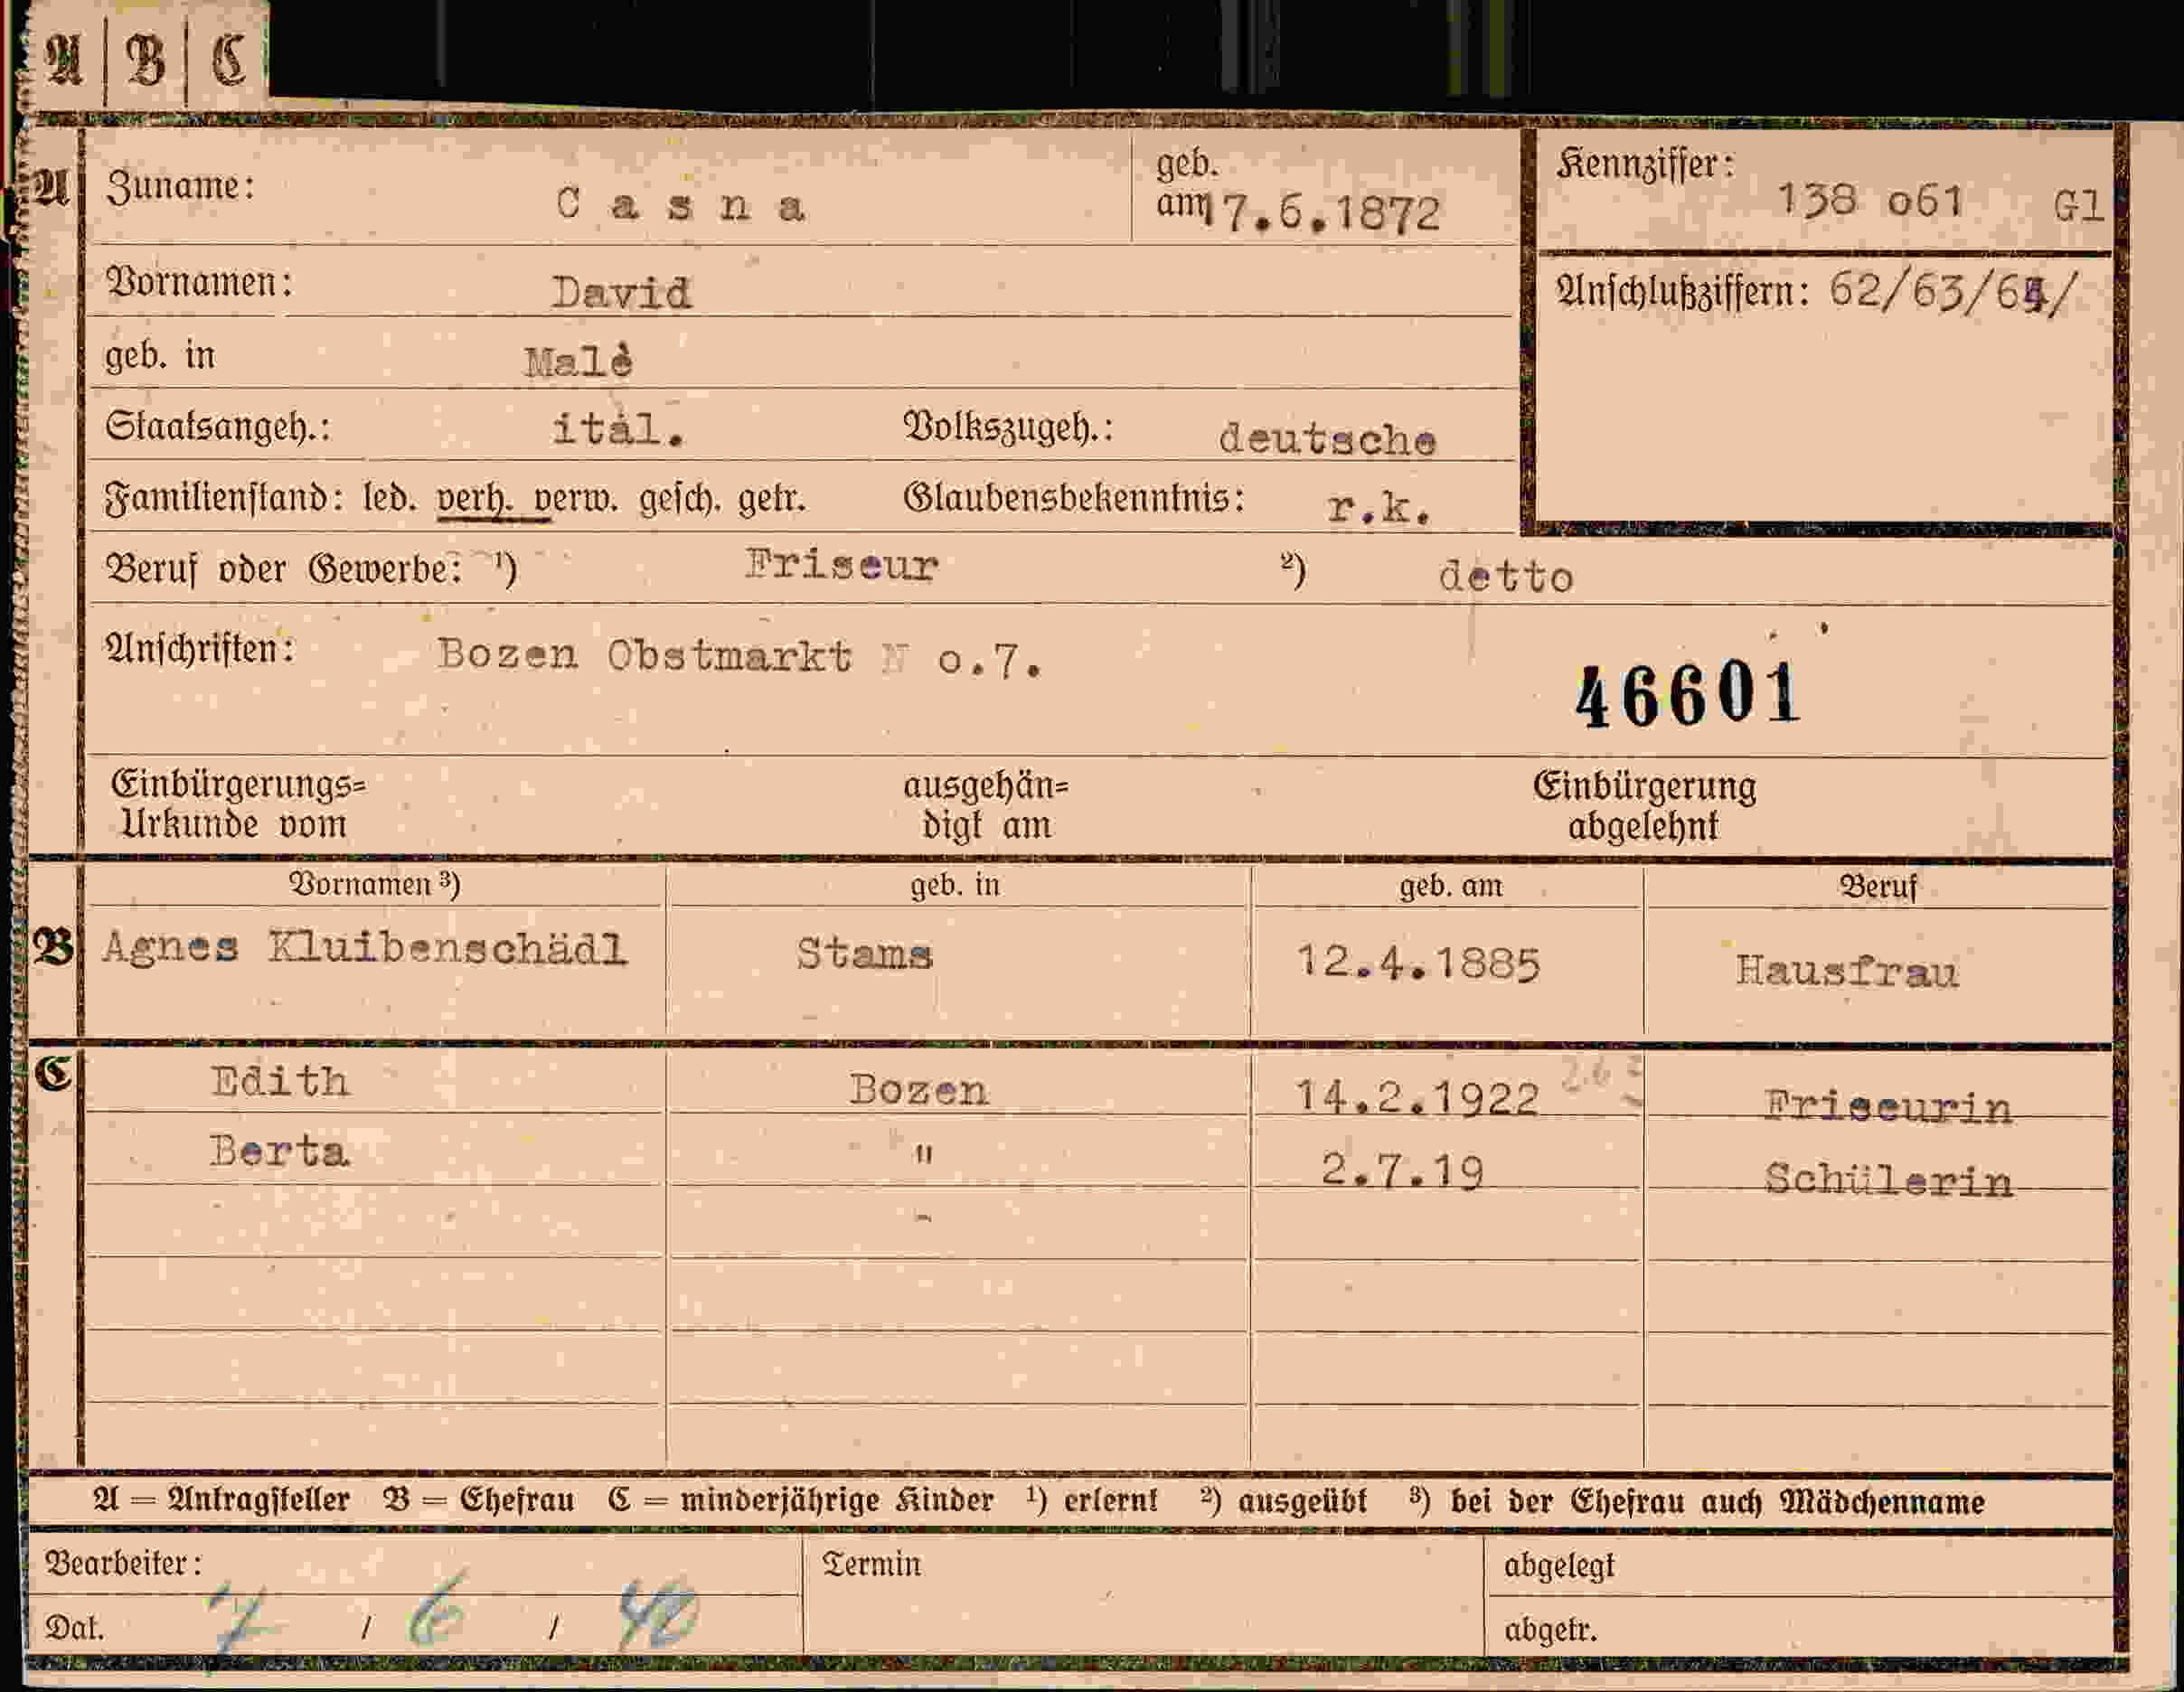 A | B | C
A Zuname: Casna geb. am 17.6.1872 Kennziffer: 138 o61 Gl
Vornamen: David Anschlußziffern: 62/63/64/
geb. in Malè
Staatsangeh.: ital. Volkszugeh.: deutsche
Familienstand: led. verh. verw. gesch. getr. Glaubensbekenntnis: r.k.
Beruf oder Gewerbe: ¹) Friseur ²) detto
Anschriften: Bozen Obstmarkt N o.7.
46601
Einbürgerungs= ausgehän= Einbürgerung
Urkunde vom digt am abgelehnt
Vornamen ³) geb. in geb. am Beruf
B Agnes Kluibenschädl Stams 12.4.1885 Hausfrau
C Edith Bozen 14.2.1922 Friseurin
Berta " 2.7.19 Schülerin
A = Antragsteller B = Ehefrau C = minderjährige Kinder ¹) erlernt ²) ausgeübt ³) bei der Ehefrau auch Mädchenname
Bearbeiter: Termin abgelegt
Dat. 7 / 6 / 40 abgetr.